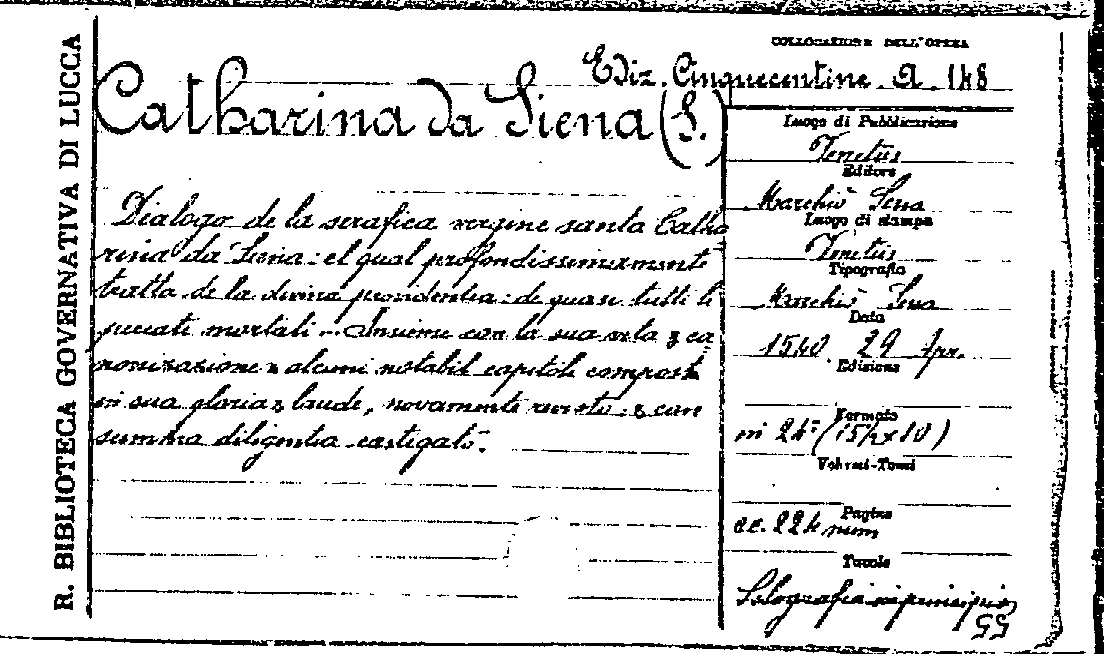 R. BIBLIOTECA GOVERNATIVA DI LUCCA
COLLOCAZIONE DELL'OPERA
Ediz. Cinquecentine. A. 148
Catharina da Siena (S.)
Dialogo de la serafica vergine santa Catha
rina da Siena: el qual profondissimamente
tratta de la divina providentia: de quasi tutti li
peccati mortali ... Insieme con la sua vita & ca
nonizazione & alcuni notabil capitoli composti
in sua gloria & laude, novamente revisto: & cun
summa diligentia castigato.
Luogo di Pubblicazione
Venetiis
Editore
Marchiò Sena
Luogo di stampa
Venetiis
Tipografia
Marchiò Sena
Data
1540. 29 Apr.
Edizione
Formato
in 24° (15½x10)
Volumi-Tomi
Pagine
cc. 224 num
Tavole
Silografia in principio
55